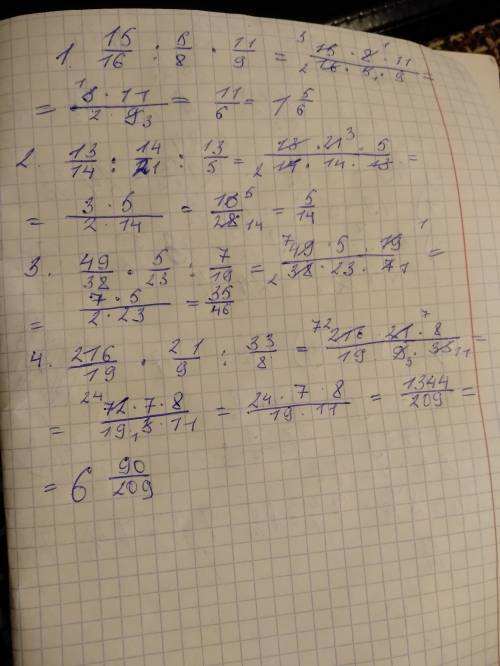 1. 15/16 : 5/8 · 11/9 = 15 · 8 · 11 / 16 · 5 · 9 =
= 3 · 11 / 2 · 9 3 = 11/6 = 1 5/6
2. 13/14 : 14/21 : 13/5 = 13 · 21 3 · 5 / 2 14 · 14 · 13 =
= 3 · 5 / 2 · 14 = 15 5 / 28 14 = 5/14
3. 49/38 · 5/23 : 7/19 = 7 49 · 5 · 19 1 / 2 38 · 23 · 7 1 =
= 7 · 5 / 2 · 23 = 35/46
4. 216/19 · 21/9 : 33/8 = 72 216 · 21 7 · 8 / 19 · 9 3 · 33 11 =
= 24 72 · 7 · 8 / 19 · 1 3 · 11 = 24 · 7 · 8 / 19 · 11 = 1344/209 =
= 6 90/209